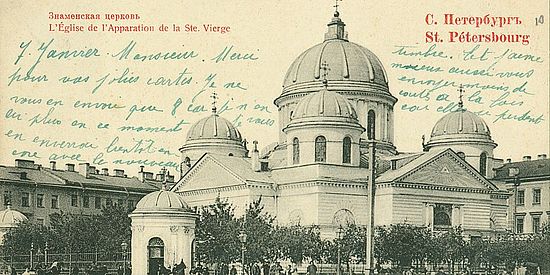 Знаменская церковь
L'Église de l'Apparation de la Ste. Vierge
С. Петербургъ
St. Pétersbourg
7 Janvier. Monsieur. Merci
pour vos jolies cartes. Je ne
vous en envoie que 8 car je n'en
ai plus en ce moment
en enverrai bientôt
avec le nouveau
timbre. Et j'aime
mieux aussi vous
envoyer moins de
cartes à la fois
car elles se perdent